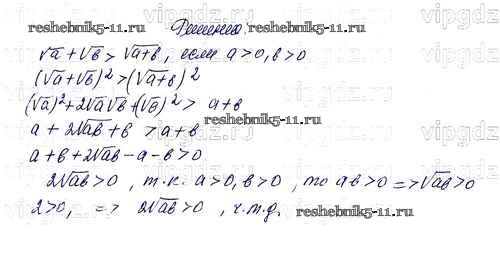 reshebnik5-11.ru Решение reshebnik5-11.ru
√a + √b > √a+b, если a>0, b>0
(√a + √b)² > (√a+b)²
(√a)² + 2√a√b + (√b)² > a+b
a + 2√ab + b > a+b
reshebnik5-11.ru
a + b + 2√ab - a - b > 0
2√ab > 0, т.к. a>0, b>0, то ab>0 => √ab>0
2>0, => 2√ab>0, ч.т.д.
reshebnik5-11.ru
vipgdz.ru